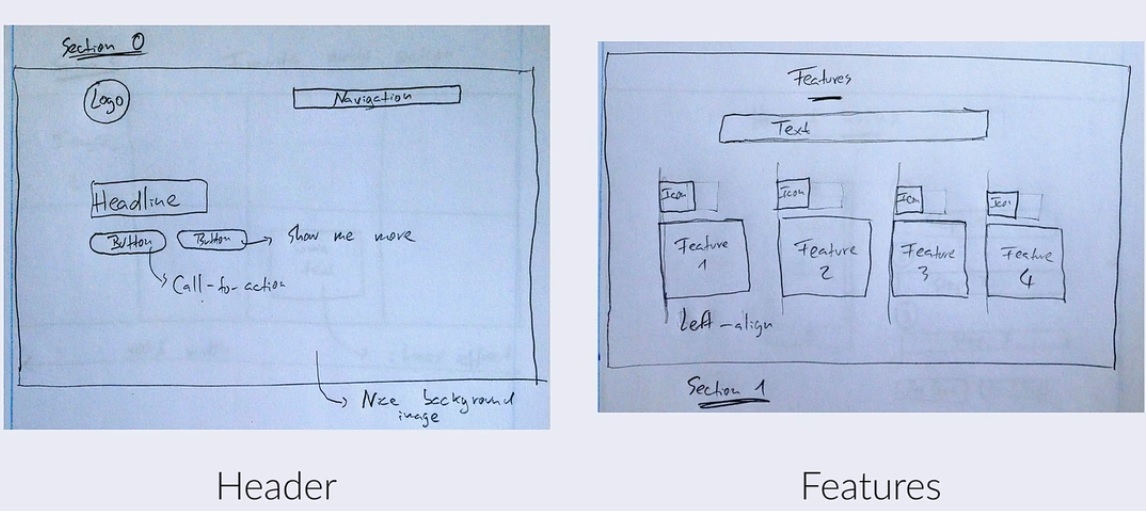 Section 0
Logo
Navigation
Headline
Button
Button
Show me more
Call-to-action
Nice background
image
Header
Features
Text
Icon
Icon
Icon
Icon
Feature
1
Feature
2
Feature
3
Feature
4
Left-align
Section 1
Features